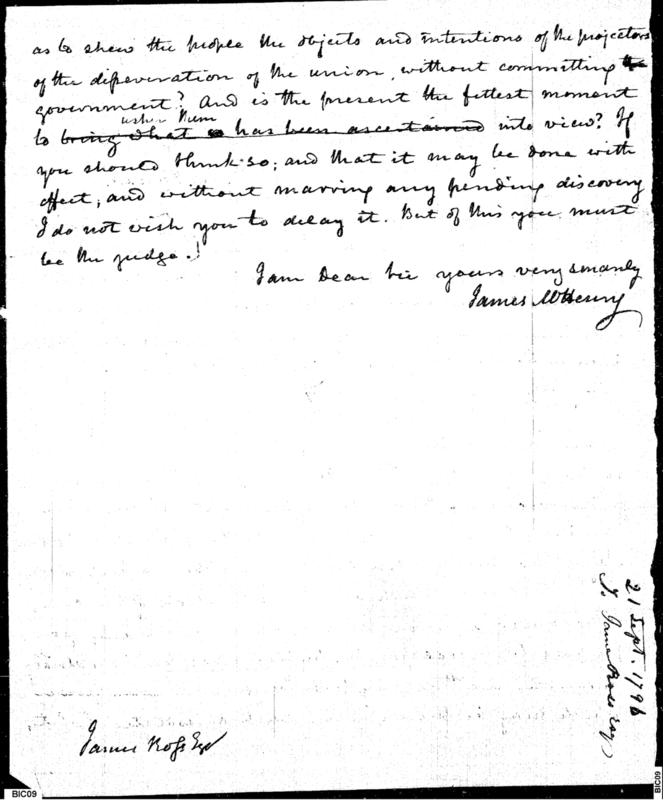 as to shew the people the objects and intentions of the projectors
of the disseveration of the union, without committing the
government? And is the present the fittest moment
usher them
to bring what is has been ascertained into view? If
you should think so; and that it may be done with
effect, and without marring any pending discovery
I do not wish you to delay it. But of this you must
be the judge.
I am Dear Sir yours very sincerely
James McHenry
21 Sept. 1796
To James Ross Esq
James Ross Esqr
BIC09
BIC09